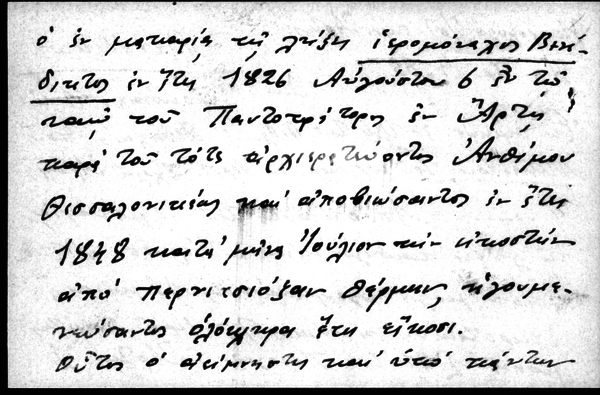 ὁ ἐν μακαρίᾳ τῇ λήξῃ ἱερομόναχος Βενέ-
δικτος ἐν ἔτει 1826 Αὐγούστου 6 ἐν τῷ
ναῷ τοῦ Παντοκράτορος ἐν Ἄρτῃ
παρὰ τοῦ τότε ἀρχιερατεύοντος Ἀνθίμου
Θεσσαλονικέας καὶ ἀποβιώσαντος ἐν ἔτει
1848 κατὰ μῆνα Ἰούλιον τὴν εἰκοστὴν
ἀπὸ θέρμην, ἡγουμε-
νεύσαντος ὁλόκληρα ἔτη εἴκοσι.
Οὗτος ὁ ἀείμνηστος καὶ ὑπὸ πάντων